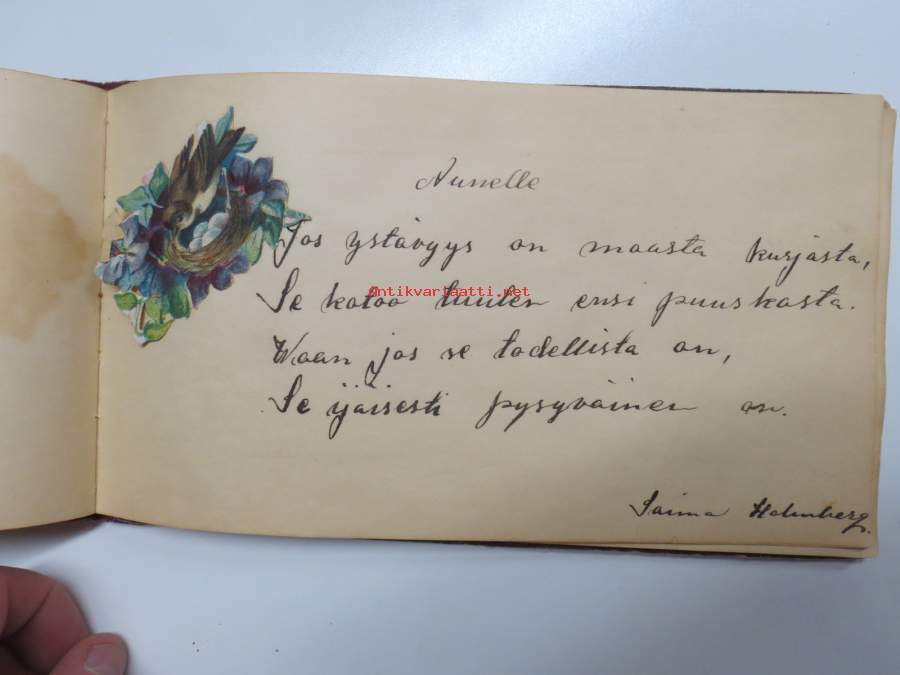 Nunelle
Jos ystävyys on maasta kurjasta,
Se katoo tuulen ensi puuskasta.
Antikvartaatti.net
Waan jos se todellista on,
Se ijäisesti pysyväinen on.
Saima Holmberg.